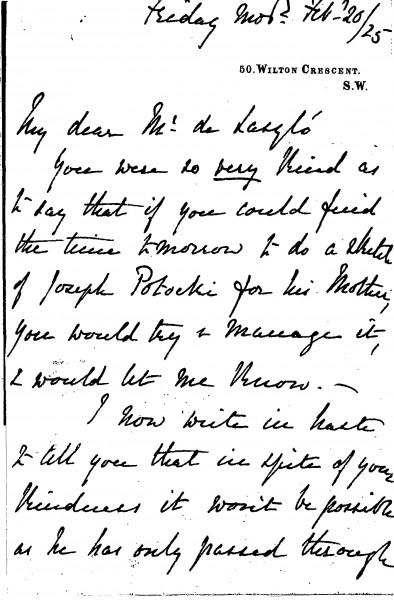 Friday Morg. Feb. 20/25
50, WILTON CRESCENT.
S.W.
My dear Mr. de László
You were so very kind as
to say that if you could find
the time tomorrow to do a sketch
of Joseph Potocki for his Mother,
you would try & manage it,
& would let me know. —
I now write in haste
to tell you that in spite of your
kindness it won't be possible
as he has only passed through